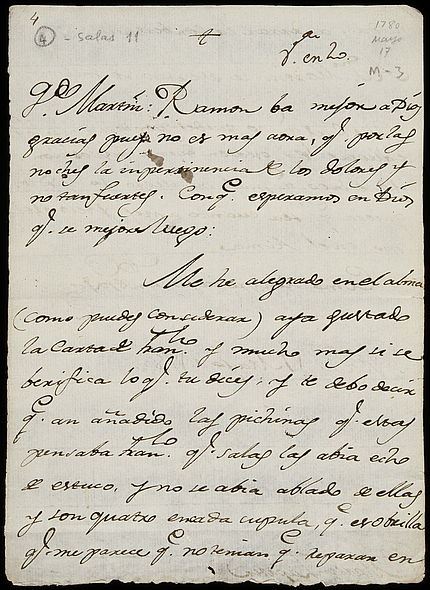 4
4 - Salas 11
1780
Mayo
17
M-3
+
Q.do Martin: Ramon ba mejor a Dios
gracias pues no es mas aora, q.e por las
noches la inpertinencia de los dolores y
no tan fuertes. Conq.e esperamos en Dios
q.e se mejore luego:
Me he alegrado en el alma
(como puedes considerar) aya gustado
la Carta de Fran.co y mucho mas si se
berifica lo q.e tu dices; y te debo decir
q.e an añadido las pichinas q.e estas
pensaba Fran.co q.e Salas las abia echo
de estuco, y no se abia ablado de ellas
y son quatro en cada cupula, q.e es obrilla
q.e me parece q.e no tenian q.e reparar en